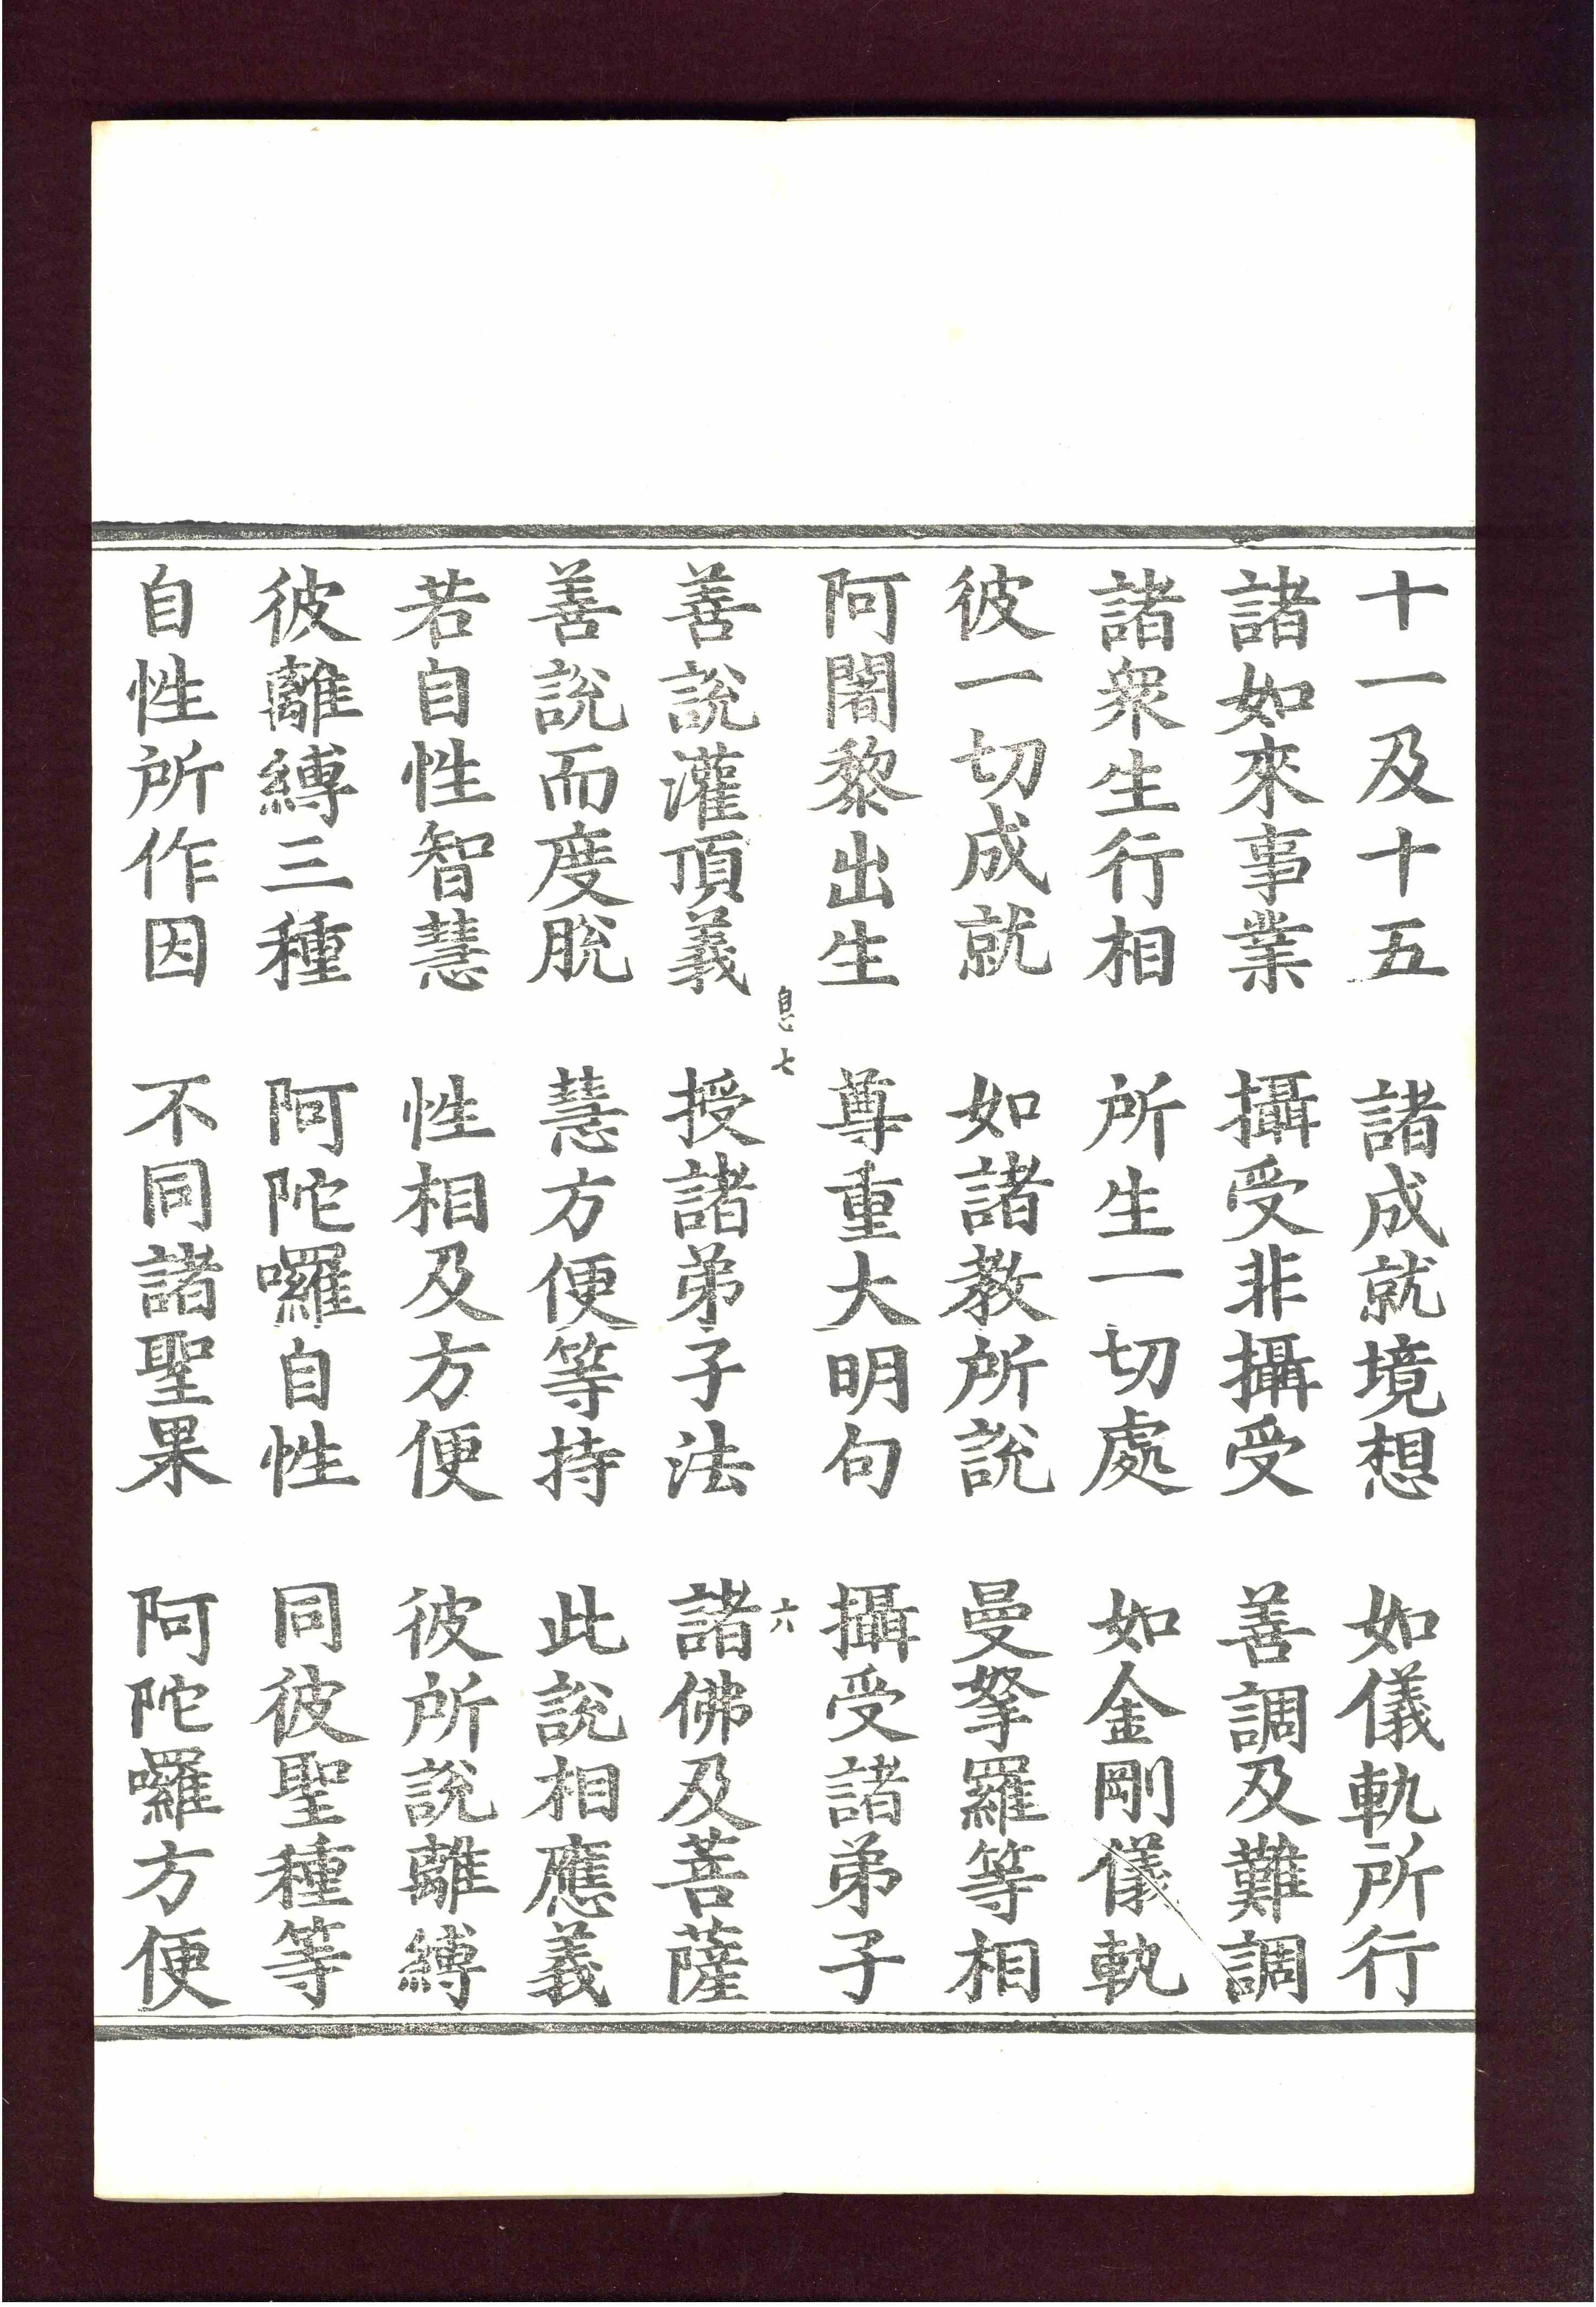 十一及十五　諸成就境想　如儀軌所行
諸如來事業　攝受非攝受　善調及難調
諸衆生行相　所生一切處　如金剛儀軌
彼一切成就　如諸教所說　曼拏羅等相
阿闍黎出生　尊重大明句　攝受諸弟子
息七　六
善說灌頂義　授諸弟子法　諸佛及菩薩
善說而度脫　慧方便等持　此說相應義
若自性智慧　性相及方便　彼所說離縛
彼離縛三種　阿陀囉自性　同彼聖種等
自性所作因　不同諸聖果　阿陀囉方便